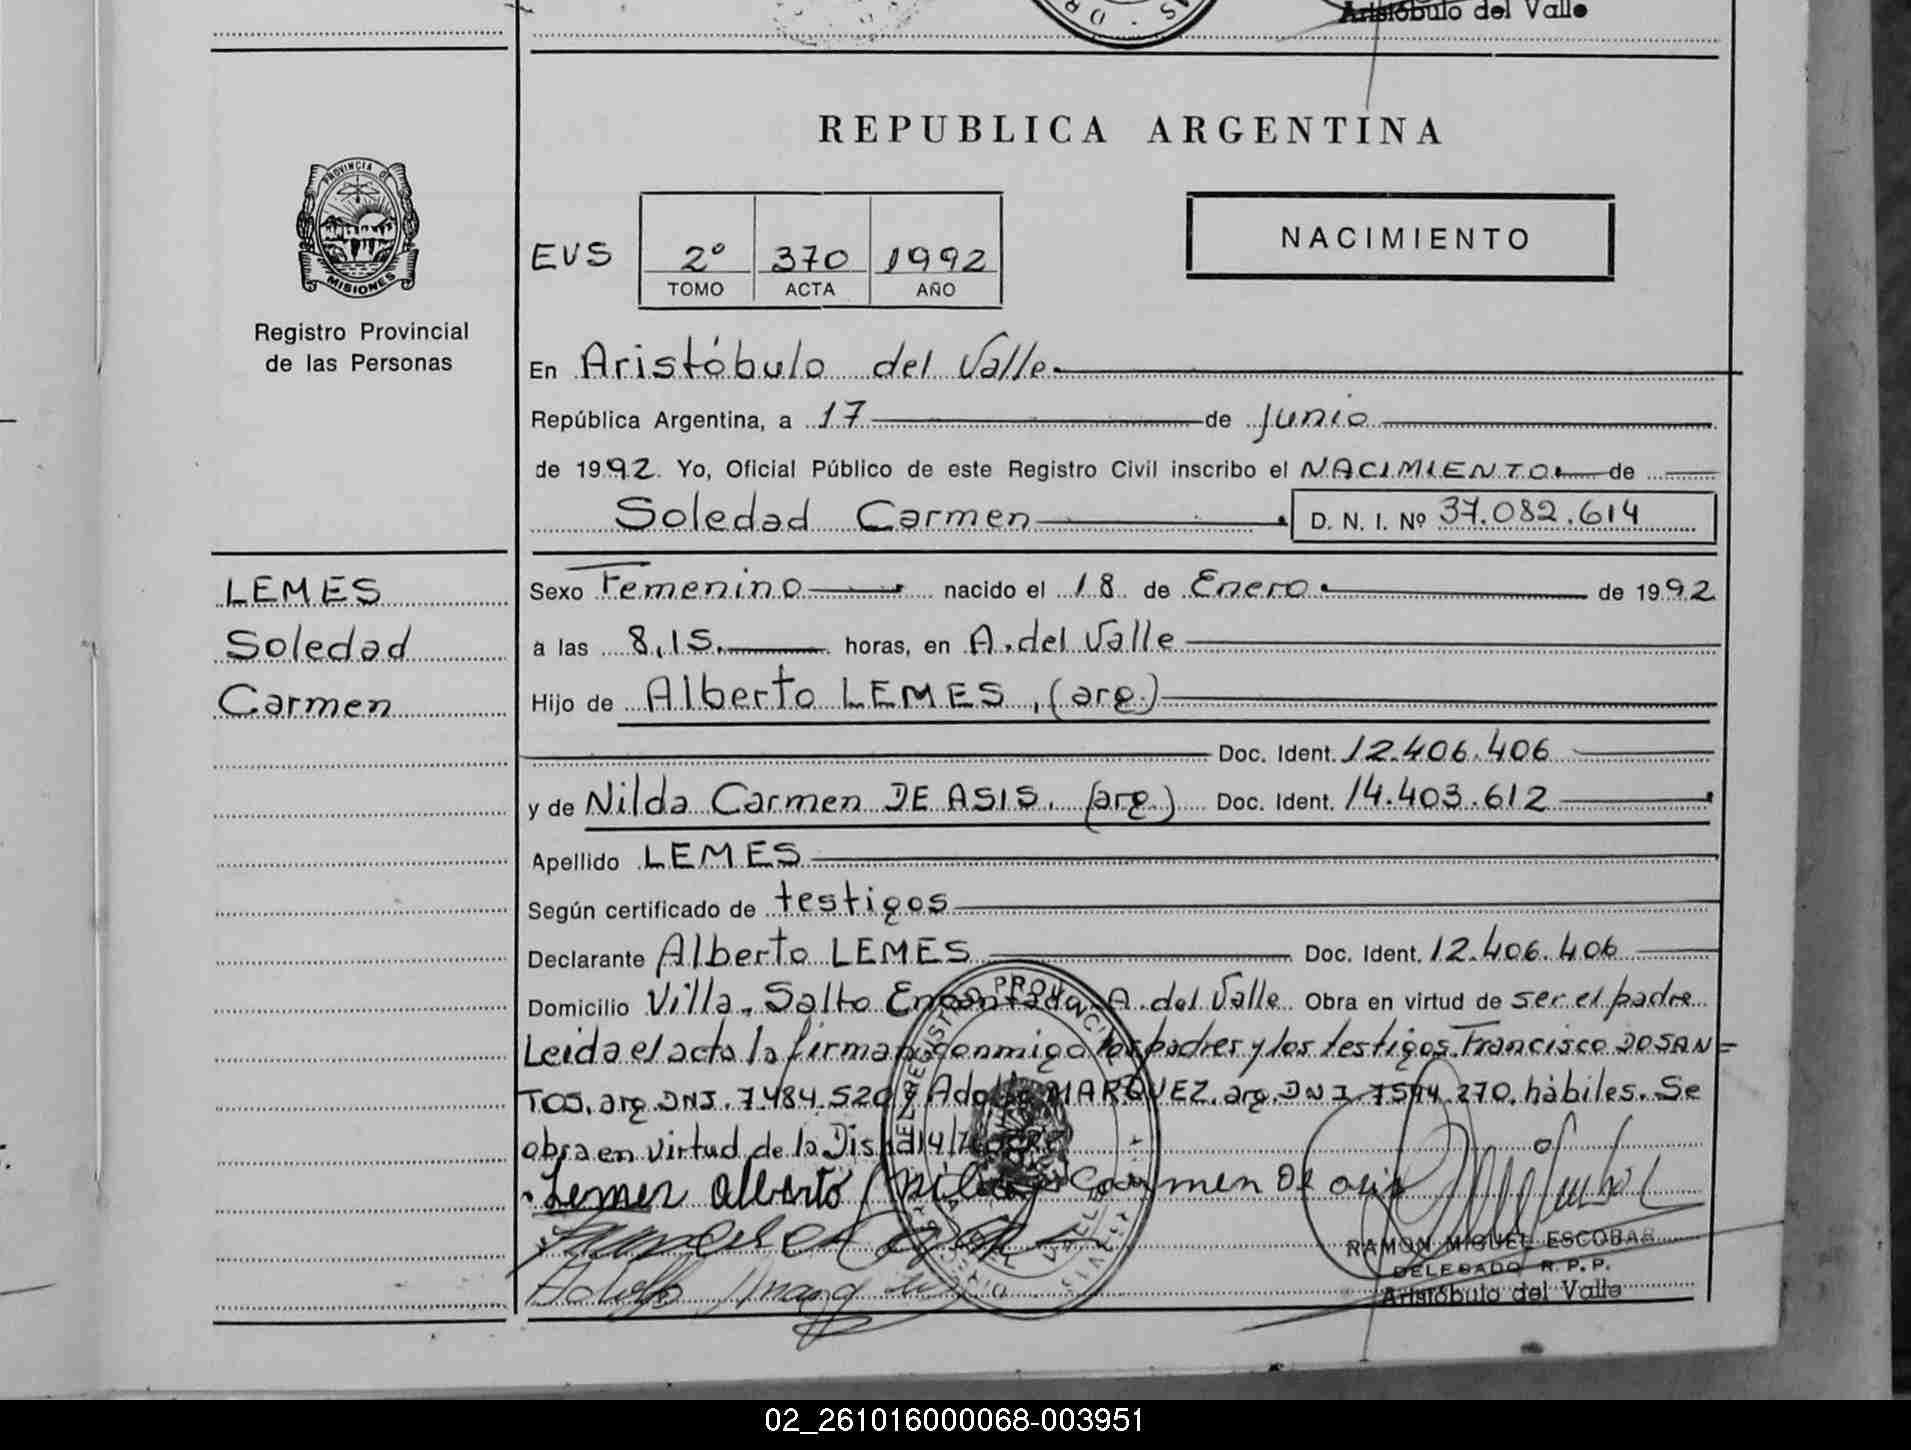 Aristóbulo del Valle
REPUBLICA ARGENTINA
PROVINCIA DE
MISIONES
Registro Provincial
de las Personas
EVS 2º 370 1992
TOMO ACTA AÑO
NACIMIENTO
En Aristóbulo del Valle
República Argentina, a 17 de Junio
de 1992. Yo, Oficial Público de este Registro Civil inscribo el NACIMIENTO de
Soledad Carmen D. N. I. Nº 37.082.614
LEMES
Soledad
Carmen
Sexo Femenino nacido el 18 de Enero de 1992
a las 8,15. horas, en A. del Valle
Hijo de Alberto LEMES, (arg.)
Doc. Ident. 12.406.406
y de Nilda Carmen DE ASIS. (arg.) Doc. Ident. 14.403.612
Apellido LEMES
Según certificado de testigos
Declarante Alberto LEMES Doc. Ident. 12.406.406
Domicilio Villa. Salto Encantado. A. del Valle Obra en virtud de ser el padre
Leida el acta la firman conmigo los padres y los testigos. Francisco DOSAN=
TOS. arg. DNI. 7.484.520 y Adolfo MARQUEZ. arg. DNI 7594.270. hàbiles. Se
obra en virtud de la
Lemes Alberto Carmen De asis
Adolfo
REGISTRO PROVINCIAL
RAMON MIGUEL ESCOBAR
DELEGADO R. P. P.
Aristóbulo del Valle
02_261016000068-003951